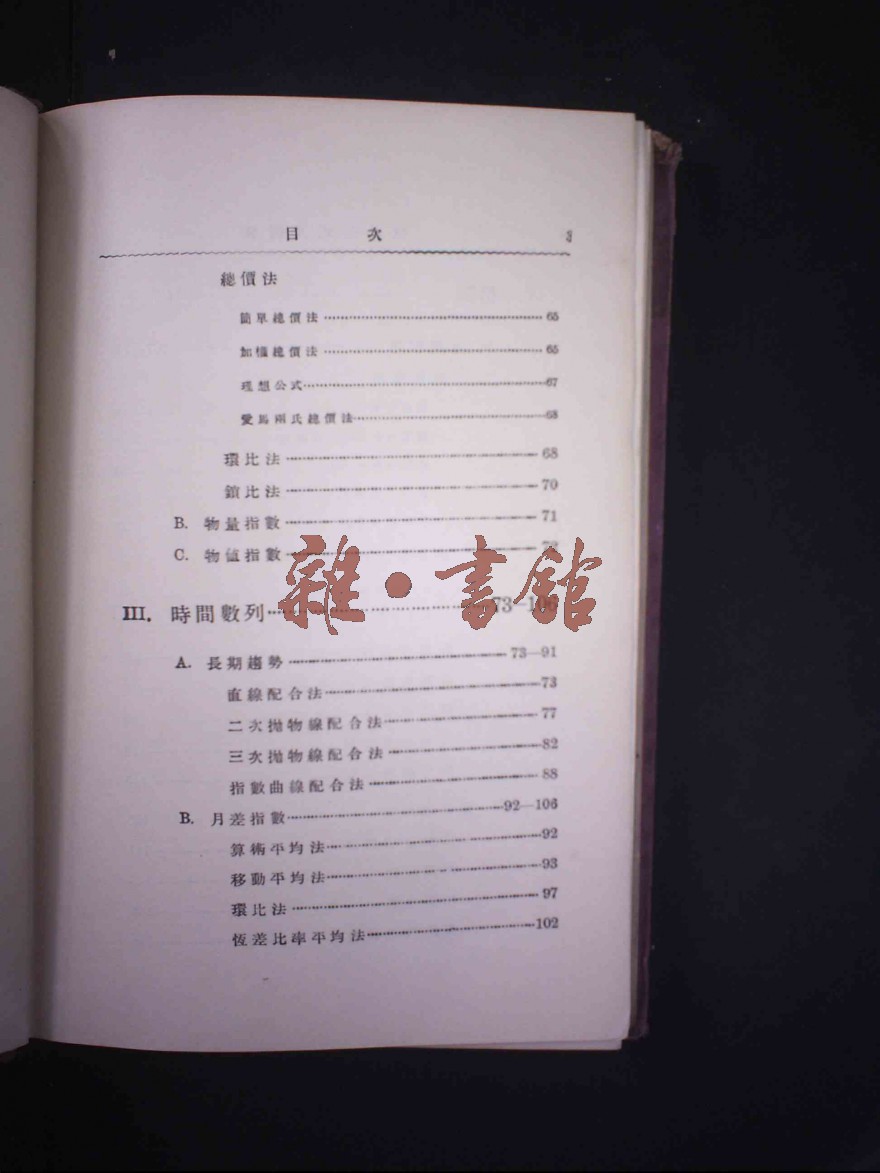 目 次 3
總價法
簡單總價法 65
加權總價法 65
理想公式 67
愛馬兩氏總價法 68
環比法 68
鎖比法 70
B. 物量指數 71
C. 物值指數
雜·書館
III. 時間數列 73—106
A. 長期趨勢 73—91
直線配合法 73
二次拋物線配合法 77
三次拋物線配合法 82
指數曲線配合法 88
B. 月差指數 92—106
算術平均法 92
移動平均法 93
環比法 97
恆差比率平均法 102